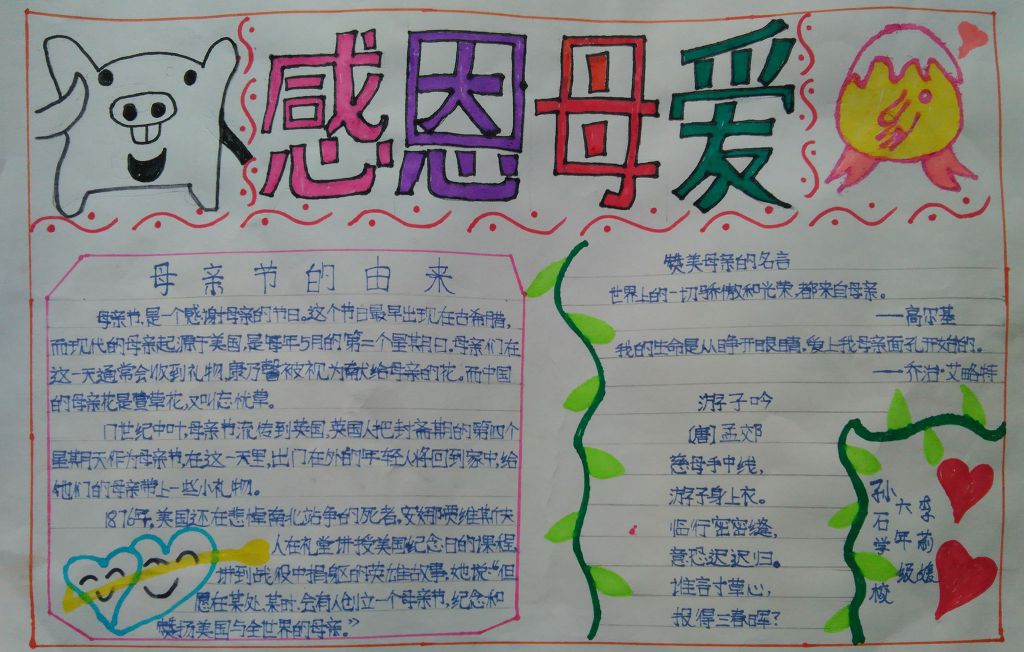 感恩母爱
母亲节的由来
母亲节,是一个感谢母亲的节日。这个节日最早出现在古希腊,
而现代的母亲起源于美国,是每年5月的第二个星期日。母亲们在
这一天通常会收到礼物,康乃馨被视为献给母亲的花。而中国
的母亲花是萱草花,又叫忘忧草。
17世纪中叶,母亲节流传到英国,英国人把封斋期的第四个
星期天作为母亲节,在这一天里,出门在外的年轻人将回到家中,给
他们的母亲带上一些小礼物。
1876年,美国还在悲悼南北站争的死者。安娜贾维斯夫
人在礼堂讲授美国纪念日的课程,
讲到战役中捐躯的英雄故事,她说:“但
愿在某处、某时,会有人创立一个母亲节,纪念和
赞扬美国与全世界的母亲。”
赞美母亲的名言
世界上的一切骄傲和光荣,都来自母亲。
——高尔基
我的生命是从睁开眼睛,爱上我母亲面孔开始的。
——乔治·艾略特
游子吟
[唐]孟郊
慈母手中线,
游子身上衣。
临行密密缝,
意恐迟迟归。
谁言寸草心,
报得三春晖?
孙石学校
六年级
李前媛